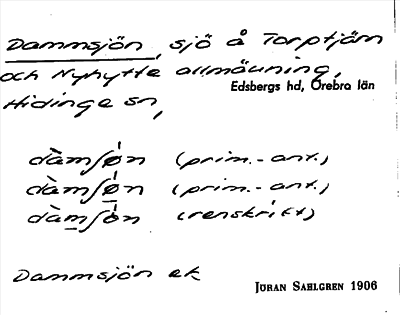 Dammsjön, sjö å Torptjärn
och Nyhytte allmänning,
Edsbergs hd, Örebro län
Hidinge sn,
dàmʃø̀n (prim.-ant.)
dàmʃø̀n (prim.-ant.)
dàmʃön (renskrift)
Dammsjön ek
JÖRAN SAHLGREN 1906